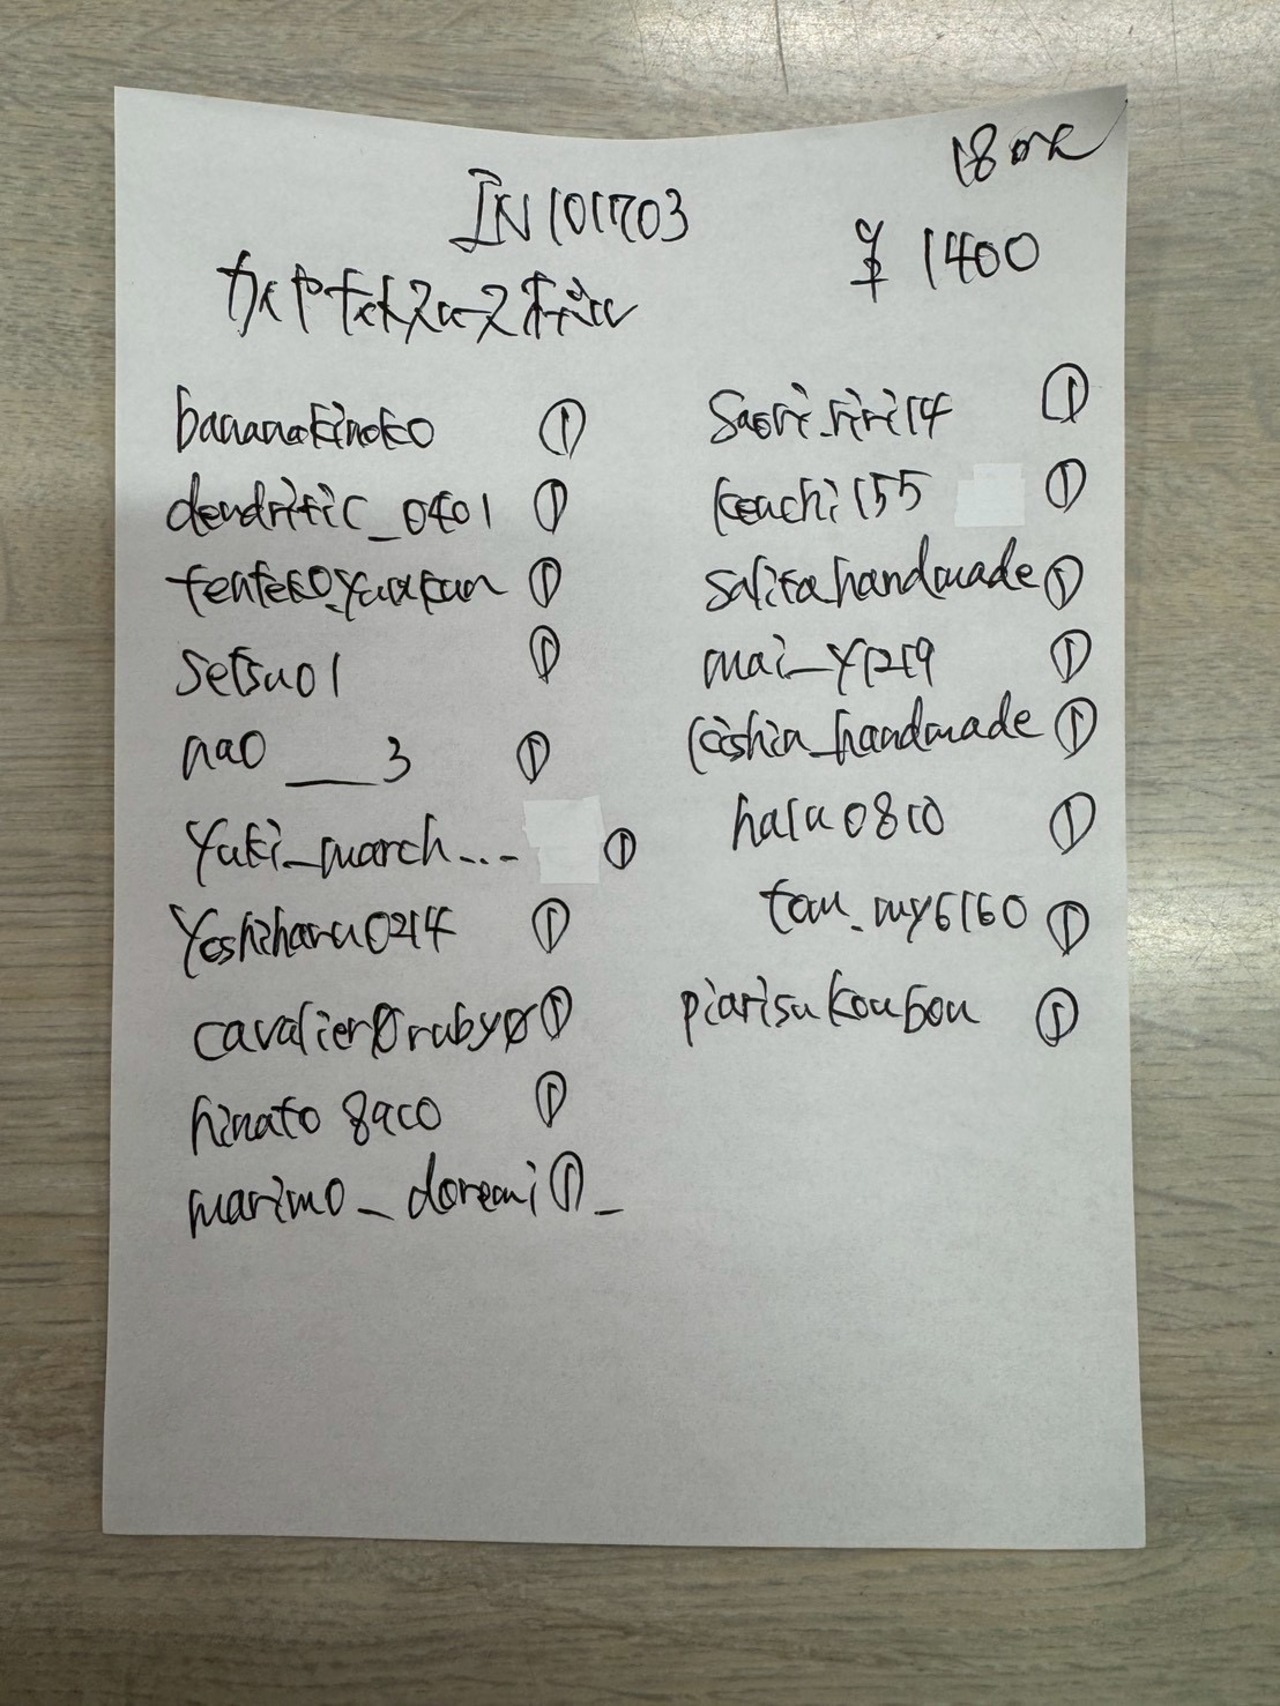 18ok
IN101703
¥ 1400
bananakinoko ①
dendritic_0401 ①
tenteko.yuukun ①
setsu01 ①
nao___3 ①
yuki_march... ①
yoshiharu0214 ①
cavalier0ruby0 ①
hinato8910 ①
marimo_doremi ① _
saori_riri14 ①
keachi155 ①
salita_handmade ①
mai_y1219 ①
lishia_handmade ①
haru0810 ①
tam_my6160 ①
piarisukoubou ①